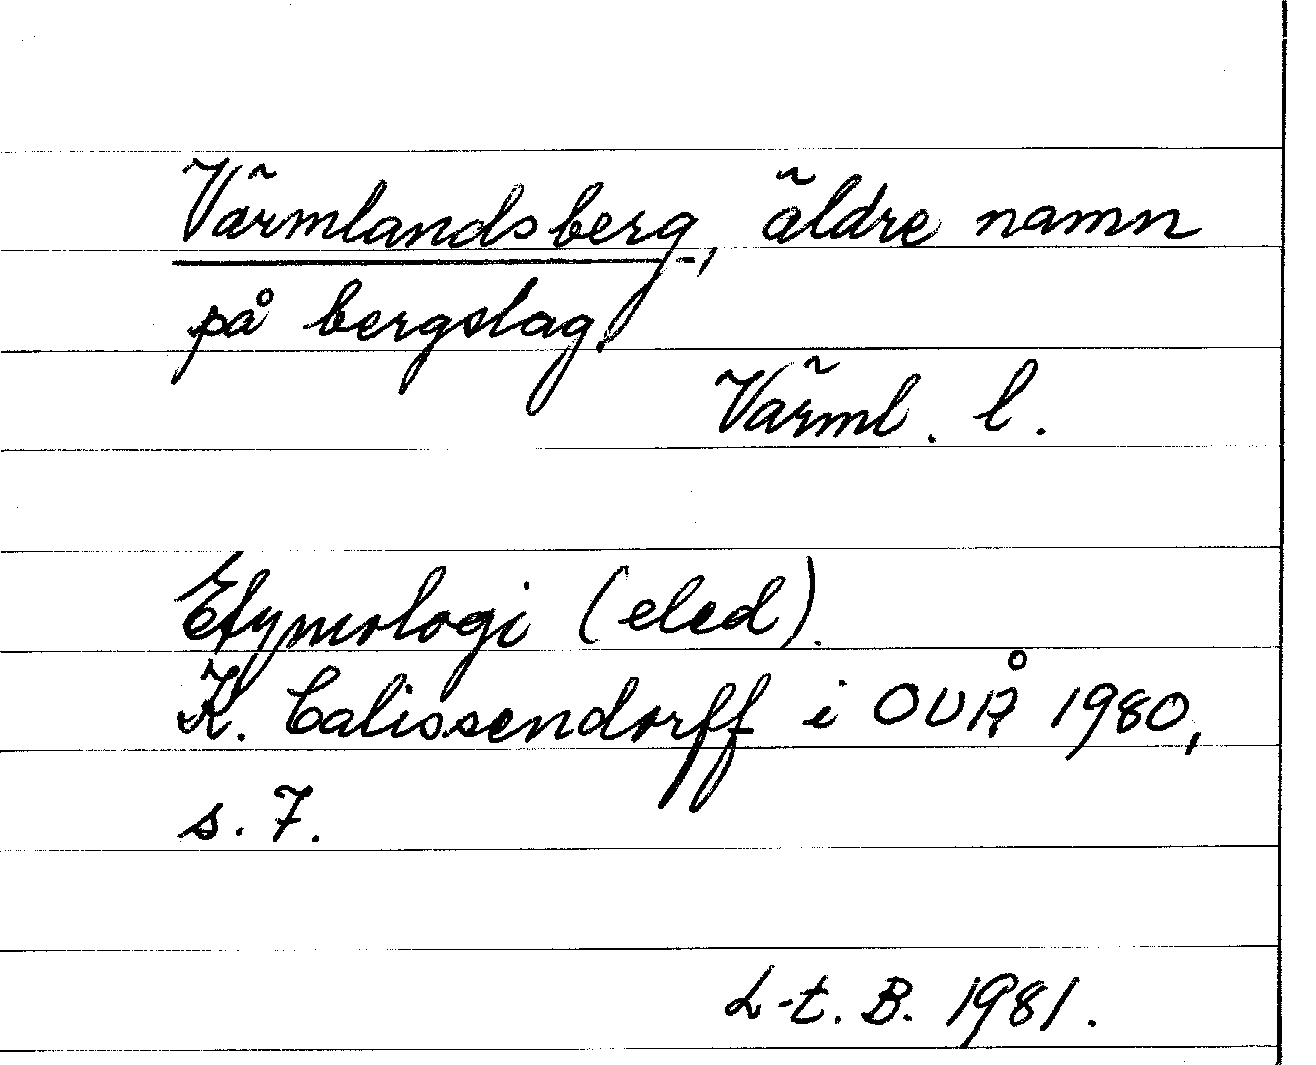 Värmlandsberg, äldre namn
på bergslag.
Värml. l.
Etymologi (eled).
K. Calissendorff i OUÅ 1980,
s. 7.
L-t. B. 1981.